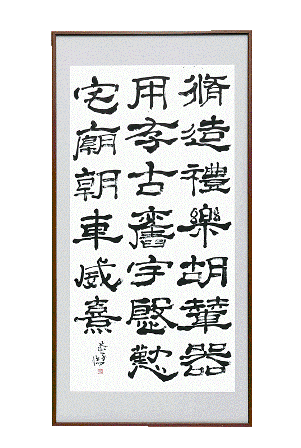 脩造禮樂胡輦器
用存古舊宇慇懃
宅廟朝車威熹